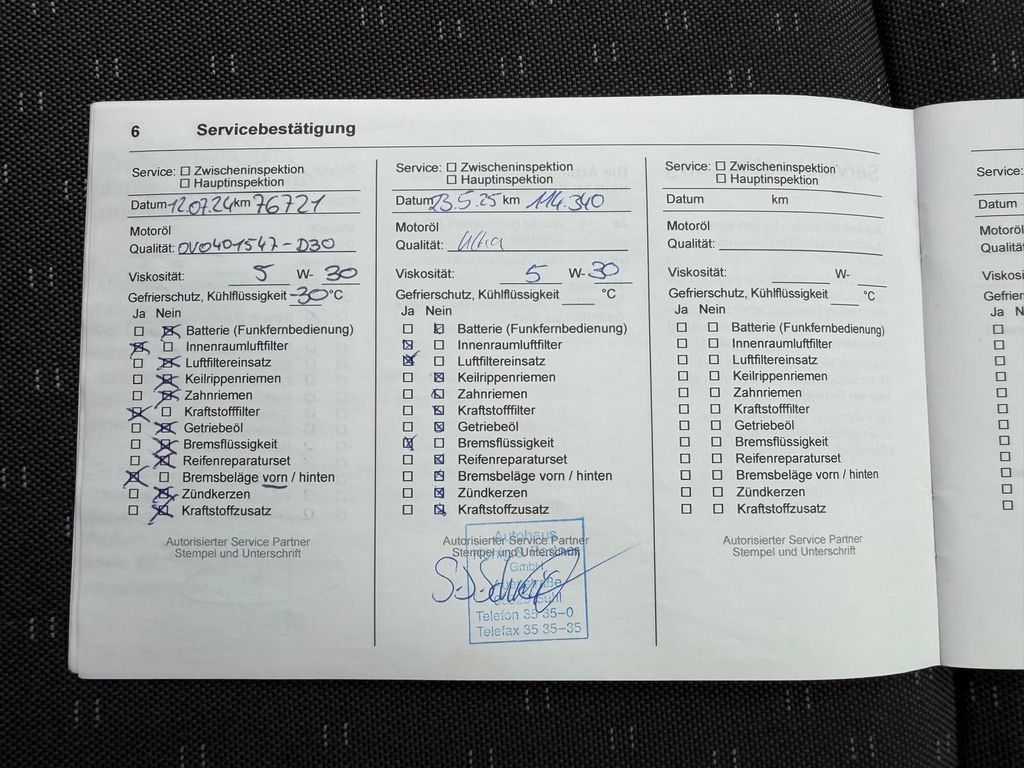 6 Servicebestätigung
Service: Zwischeninspektion
Hauptinspektion
Datum 12.07.24 km 76721
Motoröl
Qualität: OVO401547-D30
Viskosität: 5 W- 30
Gefrierschutz, Kühlflüssigkeit -30 °C
Ja Nein
Batterie (Funkfernbedienung)
Innenraumluftfilter
Luftfiltereinsatz
Keilrippenriemen
Zahnriemen
Kraftstofffilter
Getriebeöl
Bremsflüssigkeit
Reifenreparaturset
Bremsbeläge vorn / hinten
Zündkerzen
Kraftstoffzusatz
Autorisierter Service Partner
Stempel und Unterschrift
Service: Zwischeninspektion
Hauptinspektion
Datum 23.5.25 km 114.340
Motoröl
Qualität: Ultra
Viskosität: 5 W- 30
Gefrierschutz, Kühlflüssigkeit °C
Ja Nein
Batterie (Funkfernbedienung)
Innenraumluftfilter
Luftfiltereinsatz
Keilrippenriemen
Zahnriemen
Kraftstofffilter
Getriebeöl
Bremsflüssigkeit
Reifenreparaturset
Bremsbeläge vorn / hinten
Zündkerzen
Kraftstoffzusatz
Autorisierter Service Partner
Stempel und Unterschrift
Autohaus
GmbH
Suhl
Telefon 35 35-0
Telefax 35 35-35
Service: Zwischeninspektion
Hauptinspektion
Datum km
Motoröl
Qualität:
Viskosität: W-
Gefrierschutz, Kühlflüssigkeit °C
Ja Nein
Batterie (Funkfernbedienung)
Innenraumluftfilter
Luftfiltereinsatz
Keilrippenriemen
Zahnriemen
Kraftstofffilter
Getriebeöl
Bremsflüssigkeit
Reifenreparaturset
Bremsbeläge vorn / hinten
Zündkerzen
Kraftstoffzusatz
Autorisierter Service Partner
Stempel und Unterschrift
Service:
Datum
Motoröl
Qualitä
Viskosi
Gefrier
Ja N